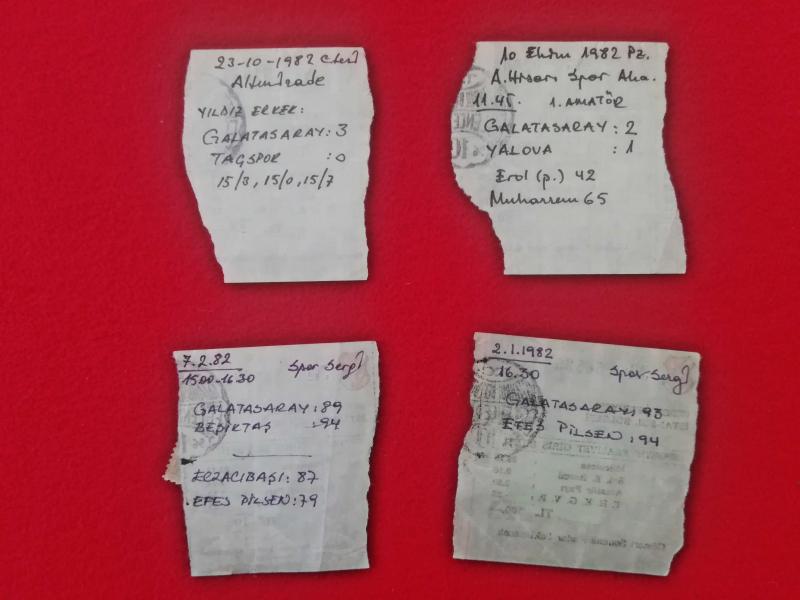 23-10-1982 C.tesi
Altınızade
YILDIZ ERKEK:
GALATASARAY: 3
TAÇSPOR : 0
15/3, 15/0, 15/7
10 Ekim 1982 Pz.
A. Hisarı Spor Aka.
11.45 1. AMATÖR
GALATASARAY : 2
YALOVA : 1
Erol (p.) 42
Muharrem 65
7.2.82
1500-16.30 Spor Sergi
GALATASARAY: 89
BEŞİKTAŞ :94
ECZACIBAŞI: 87
EFES PİLSEN: 79
2.1.1982
16.30 Spor. Sergi
GALATASARAY: 93
EFES PİLSEN : 94